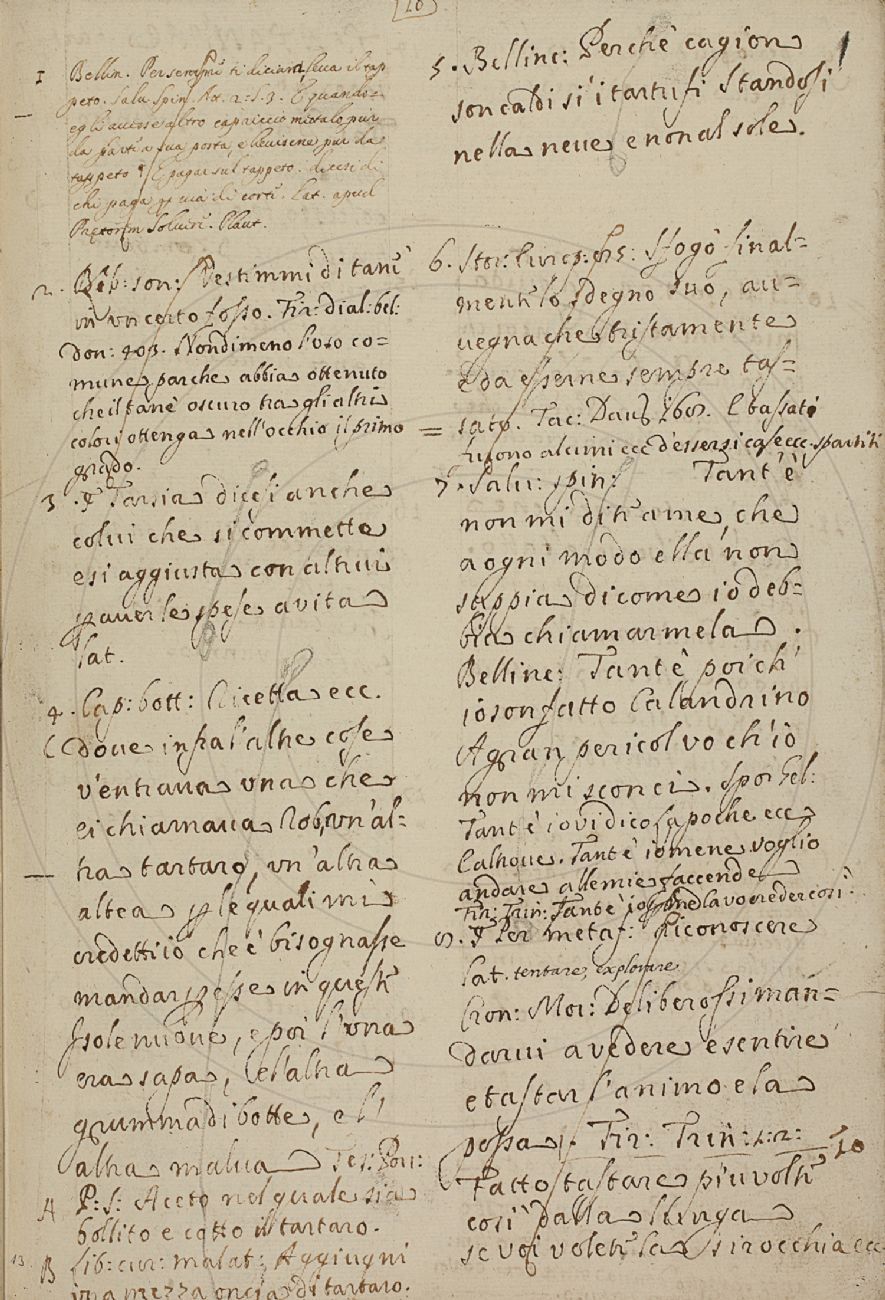 1 Bellin.
peto. Salu. Spin. At. 2. S. 3. E quando
egli avesse altro capriccio
da farti a sua posta, e
tappeto § E pagar sul tappeto. dicesi di
chi paga di corte. Lat. apud
Soluere. Plaut.
2. Lib: son: Vestimmi di tanè
in un certo fosso. Fir: dial: bel:
don: 403. Nondimeno l'uso co=
mune parche abbia ottenuto
che il tanè oscuro tra gli altri
colori ottenga nell'occhio il primo
grado.
3. § Tarsia dicesi anche
colui che si commette
e si aggiusta con altrui
auer le spese a vita
lat.
4. Cap: bott: Ricetta ecc.
( Doue infra l'altre cose
v'entraua una che
ei chiamaua Rob, un'al=
tra tartaro, un'altra
altea le quali mi
credetti io che e' bisognasse
mandar in queste
Isole nuoue, e poi l'una
era sapa, e l'altra
grumma di botte, e l'
altra malua Tes: Pou:
A P: S: Aceto nel quale sia
bollito e cotto il tartaro.
13 B Lib: cur: malat: Aggiugni
una mezza oncia di tartaro.
5. Bellinc: Perchè cagion
son caldi sì i tartufi Standosi
nella neue e non al sole.
6. Stor: Sfogò final=
mente lo sdegno suo, au=
uegna che tristamente
e da esserne sempre tas=
sato. Tac: Dau: E tassati
furono alcuni ecc. d'essersi cose ecc. spartiti
7. Salu: spin: Tant'è
non mi dite a me, che
a ogni modo ella non
sappia di come io deb=
bia chiamarmela.
Bellinc: Tant'è poich'
io son fatto Calandrino
A gran pericol vo ch'io
non mi sconci. Spor: Gel:
Tant'è io vi dico sapoche ecc
Tant'è io me ne voglio
andare alle mie faccende
Fir: Trin: Tant'è io non la vo creder così
8. § Per metaf: Riconoscere
Lat. tentare, explorare
Cron: Mor: Deliberossi man=
darui a vedere e sentire
e tastar l'animo e la
possa. Fir: Trin: 2: 2: 10
Fatto tastare più volte
così dalla lunga
se voi volete la sirocchia ecc